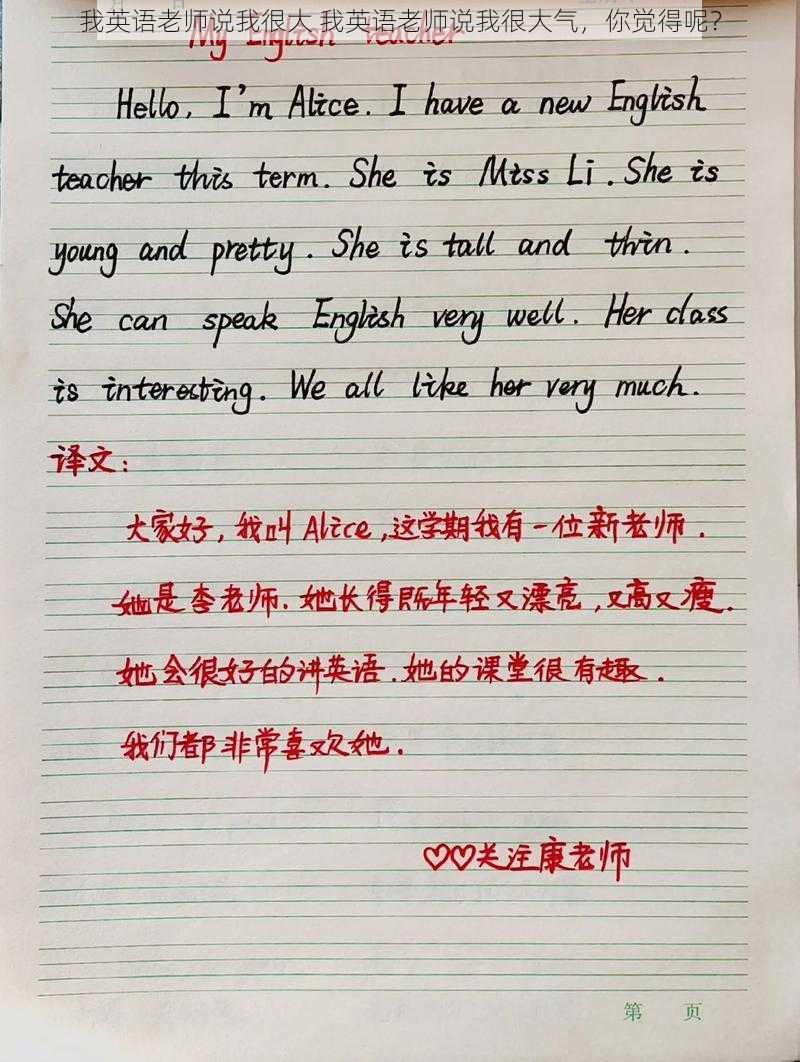 我英语老师说我很大 我英语老师说我很大气，你觉得呢？
My English teacher
Hello, I'm Alice. I have a new English
teacher this term. She is Miss Li. She is
young and pretty. She is tall and thin.
She can speak English very well. Her class
is interesting. We all like her very much.
译文：
大家好，我叫Alice,这学期我有一位新老师.
她是李老师.她长得既年轻又漂亮,又高又瘦.
她会很好的讲英语.她的课堂很有趣.
我们都非常喜欢她.
♡♡关注康老师
第 页